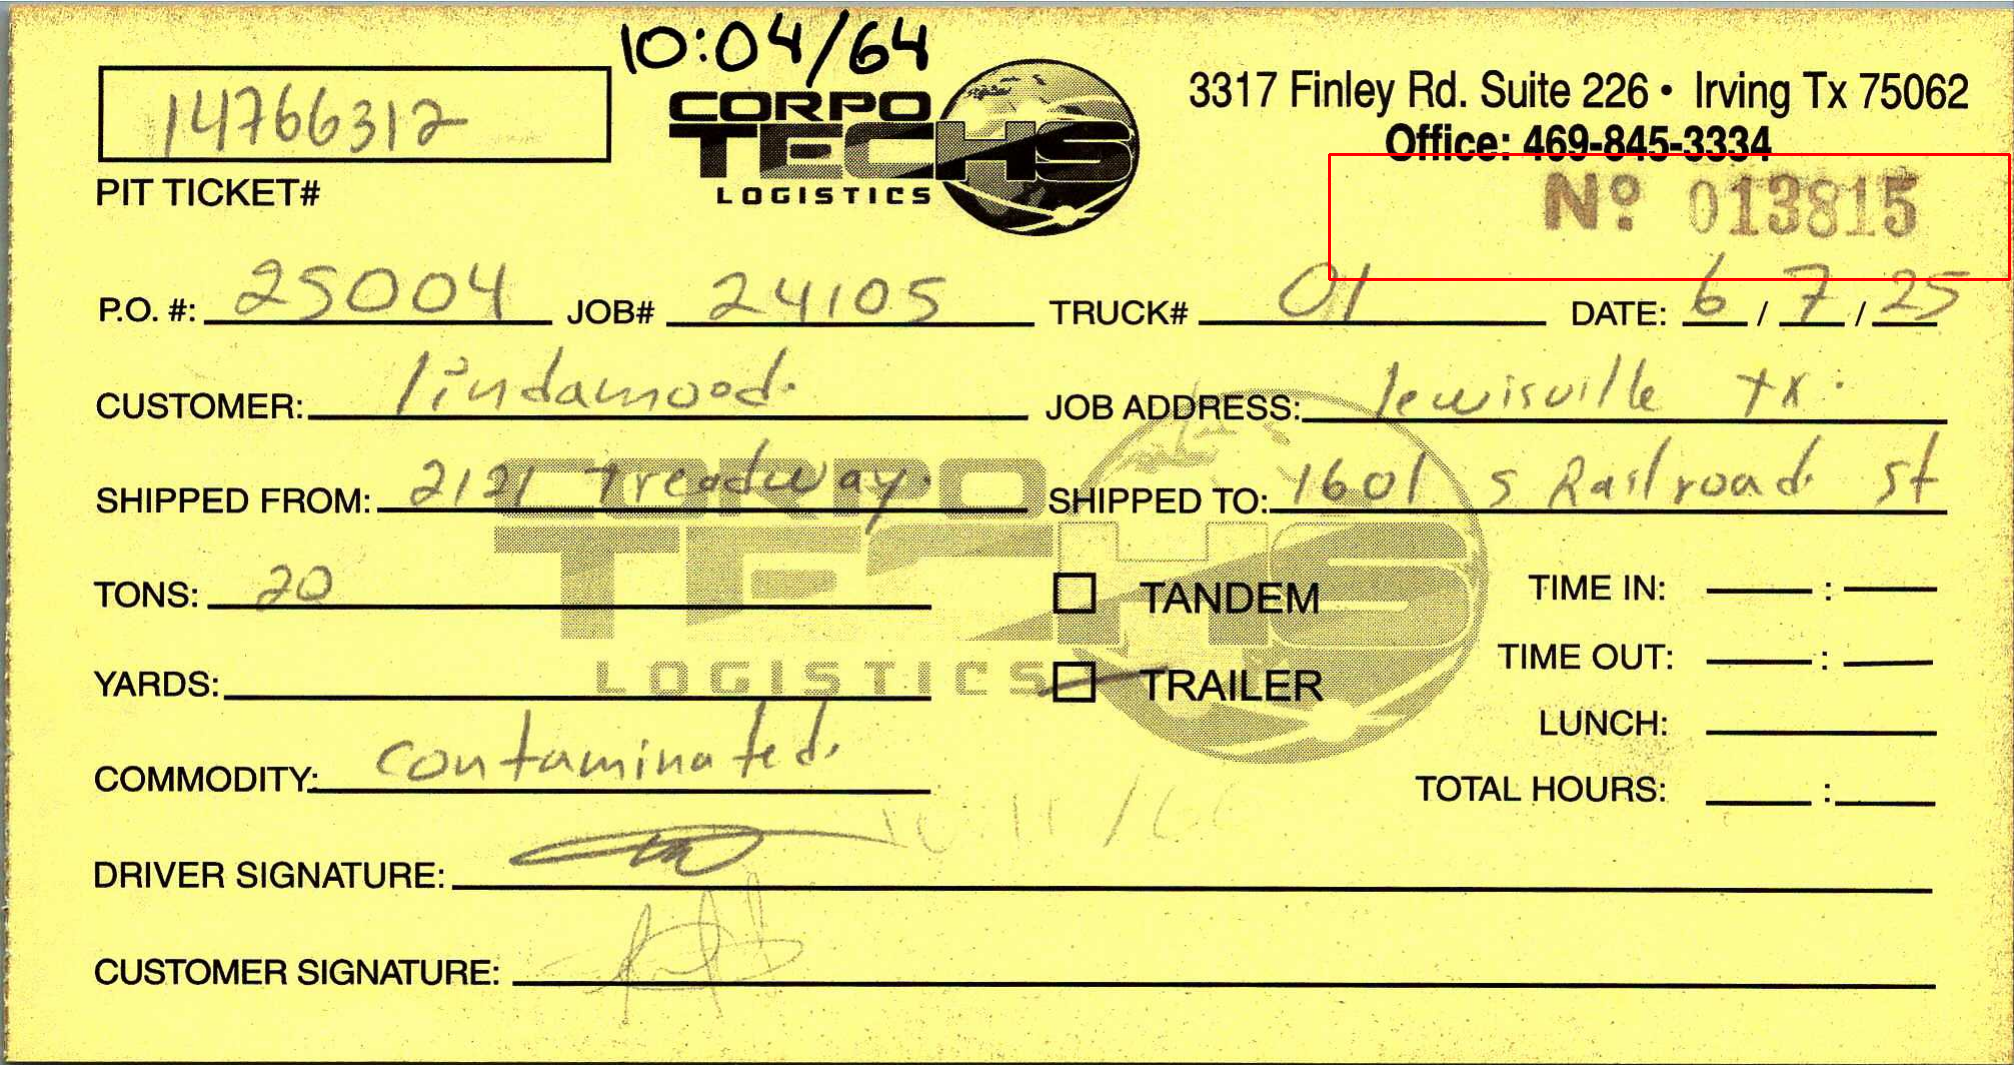 10:04/64
14766312
PIT TICKET#
CORPO
TECHS
LOGISTICS
3317 Finley Rd. Suite 226 • Irving Tx 75062
Office: 469-845-3334
Nº 013815
P.O. #: 25004 JOB# 24105 TRUCK# 01 DATE: 6 / 7 / 25
CUSTOMER: lindamood. JOB ADDRESS: lewisville tx.
SHIPPED FROM: 2121 treadway. SHIPPED TO: 1601 S Railroad St
CORPO
TECHS
LOGISTICS
TONS: 20 TANDEM TIME IN: :
TIME OUT: :
YARDS: TRAILER
LUNCH:
COMMODITY: contaminated. TOTAL HOURS: :
DRIVER SIGNATURE:
CUSTOMER SIGNATURE: